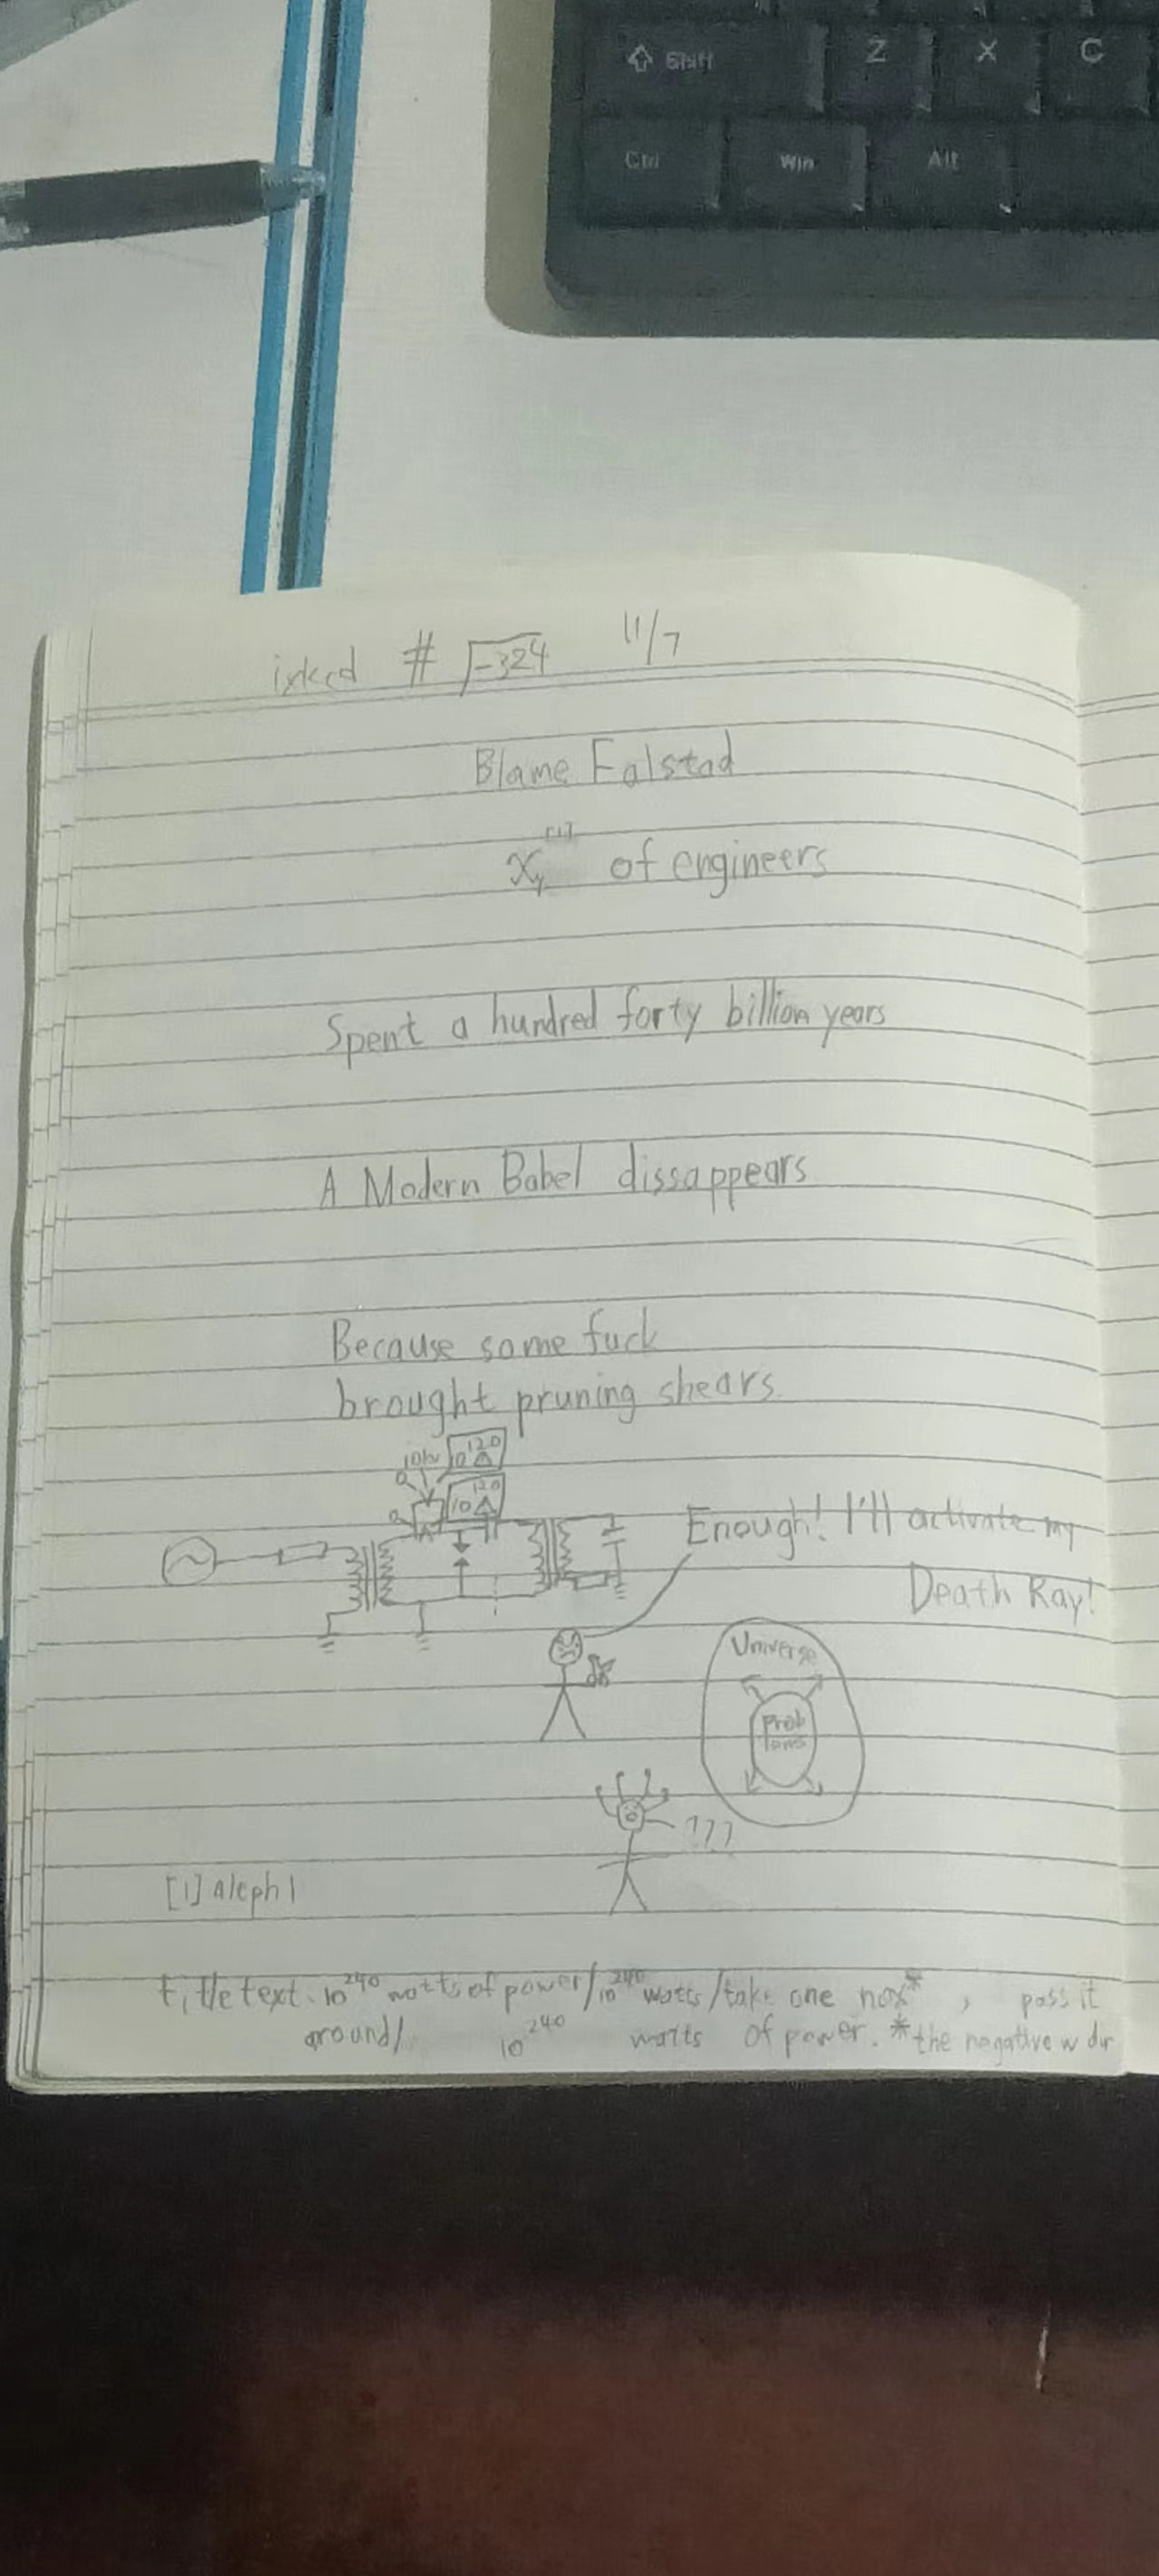 Shift Z X C
Ctrl Win Alt
ixkcd # √-324 11/7
Blame Falstad
ℵ₁[1] of engineers
Spent a hundred forty billion years
A Modern Babel dissappears
Because some fuck
brought pruning shears
10¹²⁰ A
10¹²⁰ A
Enough! I'll activate my
Death Ray!
Universe
Prob
lems
???
[1] aleph 1
title text. 10²⁴⁰ watts of power/10²⁴⁰ watts/take one nox*, pass it
around/ 10²⁴⁰ watts of power. *the negative w dir